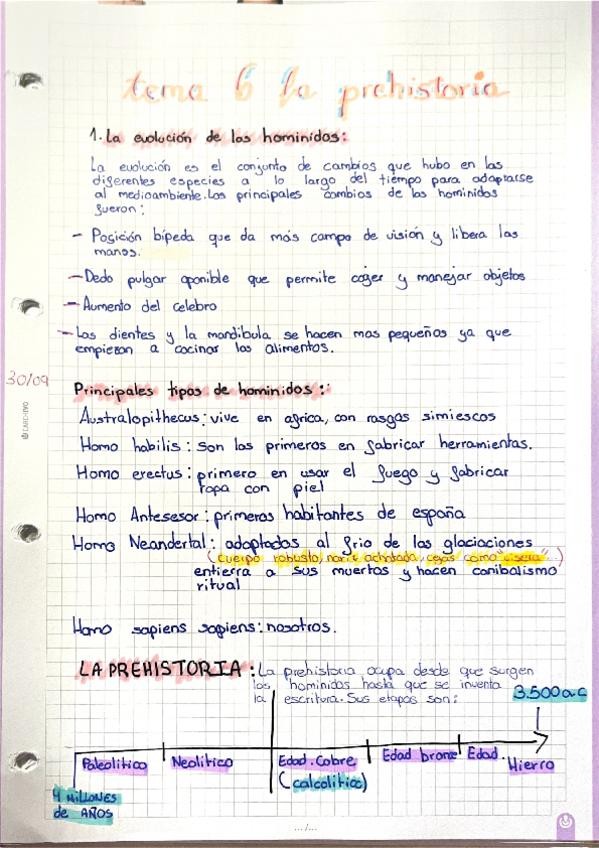 tema 6 la prehistoria
1. La evolución de los hominidos:
La evolución es el conjunto de cambios que hubo en las
diferentes especies a lo largo del tiempo para adaptarse
al medioambiente. Los principales cambios de los hominidos
fueron:
- Posición bípeda que da más campo de visión y libera las
manos.
- Dedo pulgar oponible que permite coger y manejar objetos
- Aumento del celebro
- Los dientes y la mandibula se hacen mas pequeños ya que
empiezan a cocinar los alimentos.
30/09
Principales tipos de hominidos:
Australopithecus: vive en africa, con rasgos simiescos
Homo habilis: son los primeros en fabricar herramientas.
Homo erectus: primero en usar el fuego y fabricar
ropa con piel
Homo Antesesor: primeros habitantes de españa
Homo Neandertal: adaptados al frio de las glaciaciones
(cuerpo robusto, nariz achatada, cejas como "visera"...)
entierra a sus muertos y hacen canibalismo
ritual
Homo sapiens sapiens: nosotros.
LA PREHISTORIA: La prehistoria ocupa desde que surgen
los hominidos hasta que se inventa
la escritura. Sus etapas son:
3.500 a.C
Paleolitico Neolitico Edad. Cobre Edad bronce Edad. Hierro
(calcolitico)
4 MILLONES
de AÑOS
.../...